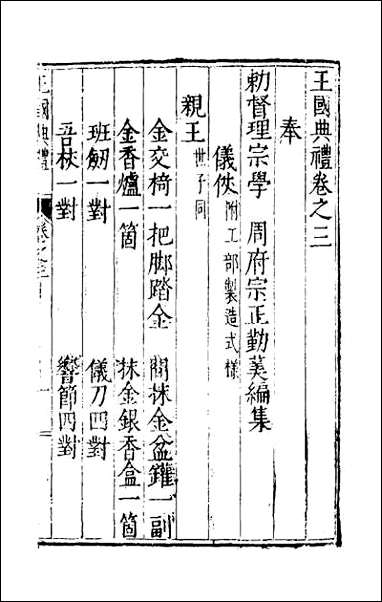 王國典禮卷之三
奉
勅督理宗學 周府宗正勤羙編集
儀仗附工部製造式樣
親王世子同
金交椅一把脚踏金 閤抹金盆鑵一副
金香爐一箇 抹金銀香盒一箇
班劒一對 儀刀四對
吾杖一對 響節四對
王國典禮 卷之三